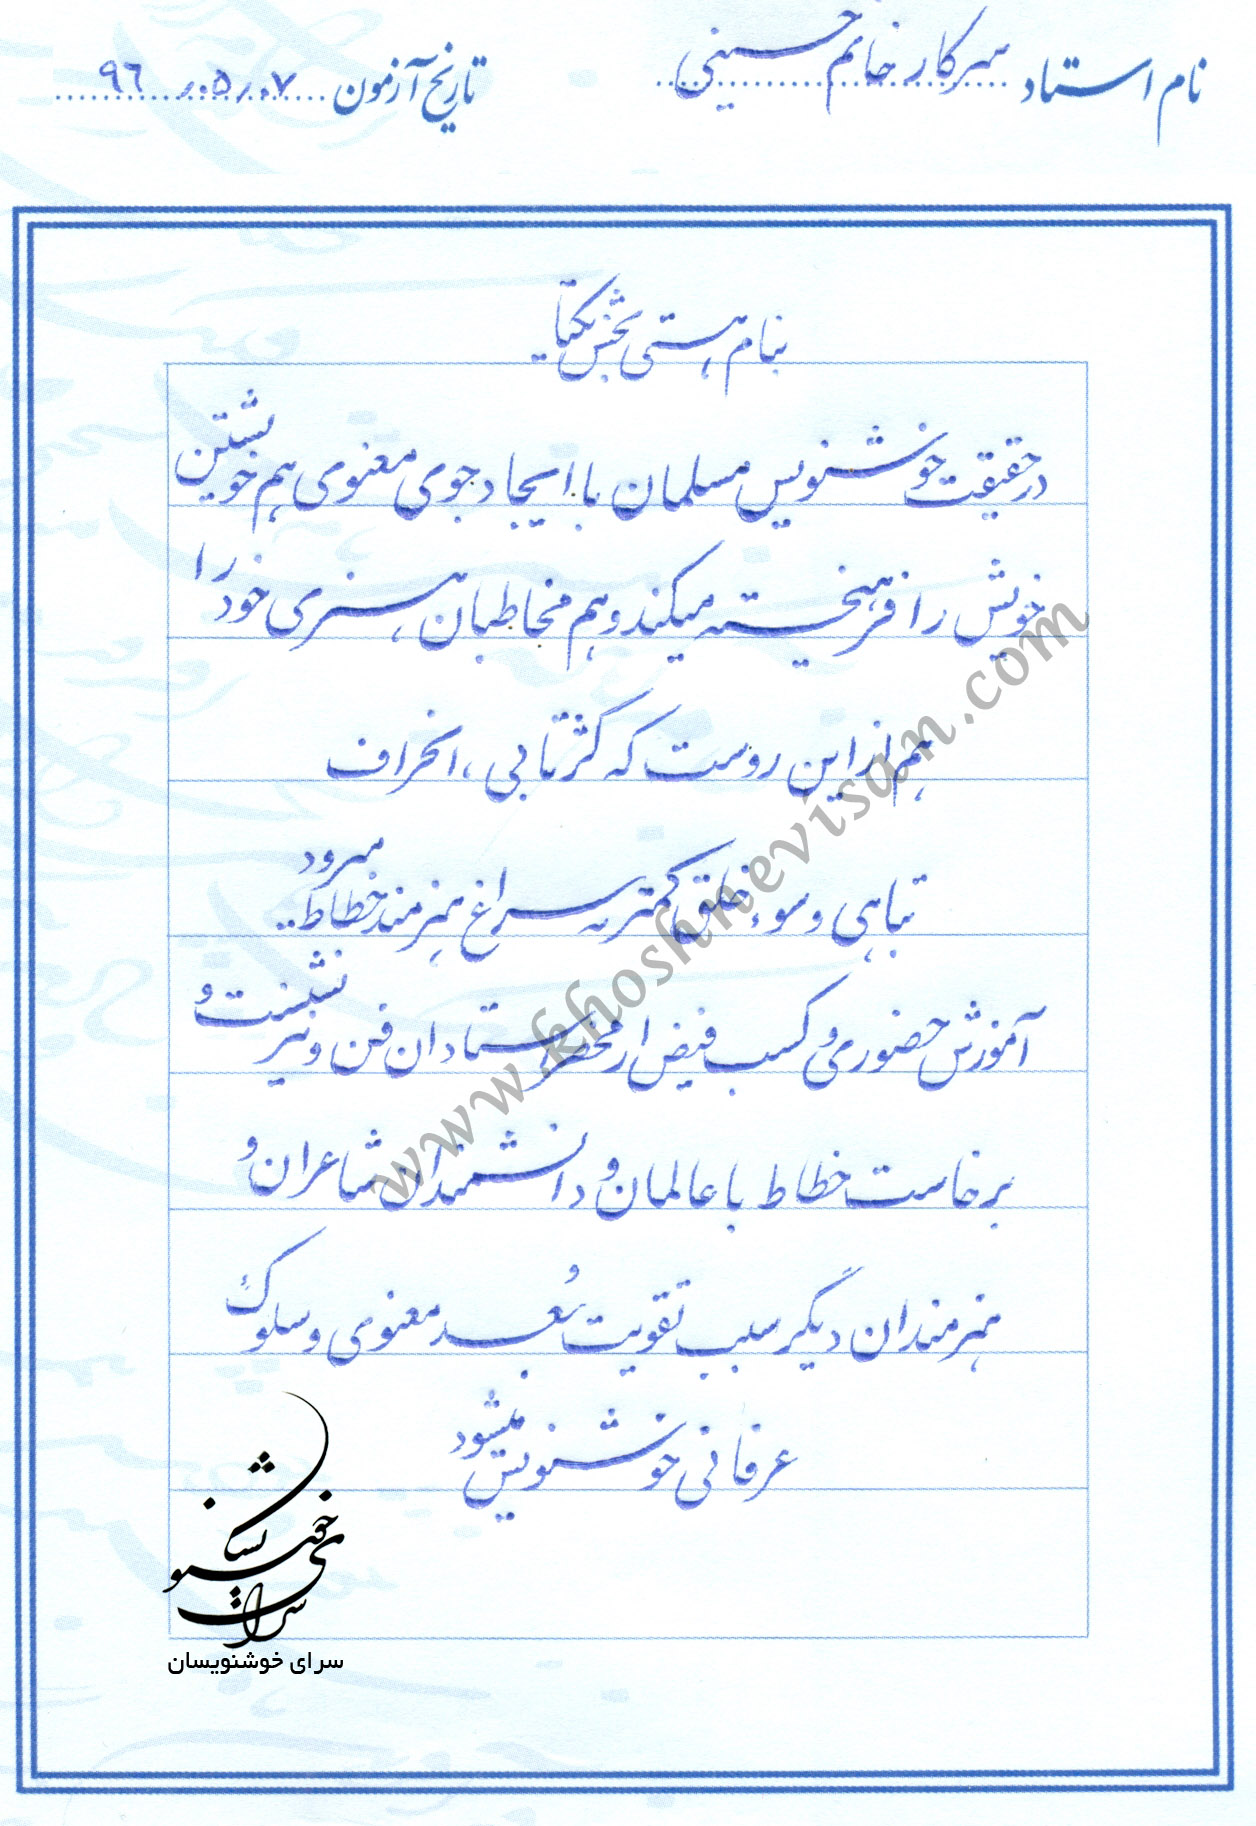 نام استاد سرکار خانم حسینی
تاریخ آزمون ۹۶/۰۵/۰۷
بنام هستی بخش یکتا
در حقیقت خوشنویس مسلمان با ایجاد جوی معنوی هم خویشتن
خویش را فرهیخته میکند و هم مخاطبان هنری خود را
هم از این روست که کژتابی ، انحراف
تباهی و سوء خلق کمتر به سراغ هنرمند خطاط میرود..
آموزش حضوری و کسب فیض از محضر استادان فن و نیز نشست و
برخاست خطاط با عالمان و دانشمندان شاعران و
هنرمندان دیگر سبب تقویت بُعد معنوی و سلوک
عرفانی خوشنویس میشود
www.khoshnevisan.com
سرای خوشنویسان